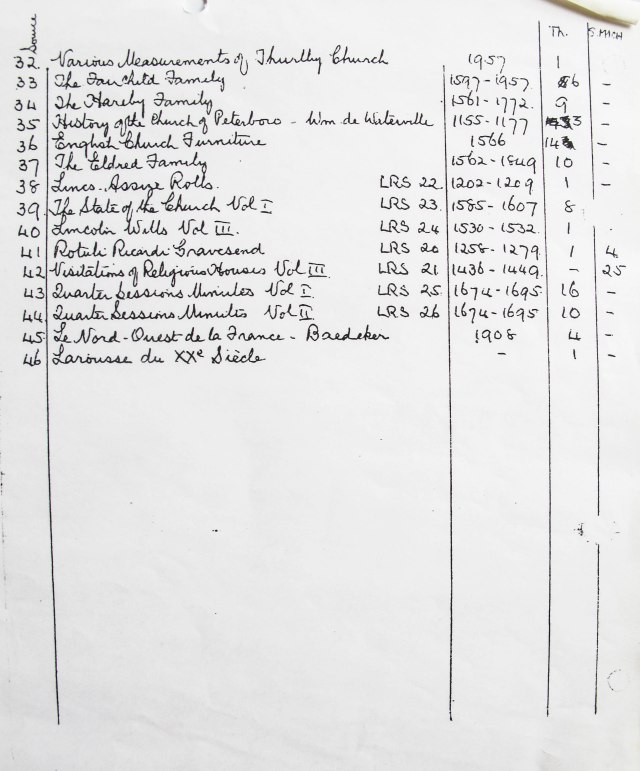 Source Th. S.MICH
32 Various Measurements of Thurlby Church 1957 1
33 The Fairchild Family 1597-1957 6 -
34 The Hareby Family 1561-1772 9 -
35 History of the Church of Peterboro - Wm de Waterville 1155-1177 3 -
36 English Church Furniture 1566 14 -
37 The Eldred Family 1562-1849 10 -
38 Lincs. Assize Rolls. LRS 22 1202-1209 1 -
39 The State of the Church Vol I LRS 23 1585-1607 8
40 Lincoln Wills Vol III. LRS 24 1530-1532 1
41 Rotuli Ricardi Gravesend LRS 20 1258-1279 1 4
42 Visitations of Religious Houses Vol III LRS 21 1436-1449 - 25
43 Quarter Sessions Minutes Vol I LRS 25 1674-1695 16 -
44 Quarter Sessions Minutes Vol II LRS 26 1674-1695 10 -
45 Le Nord-Ouest de la France - Baedeker 1908 4 -
46 Larousse du XXe Siècle - 1 -